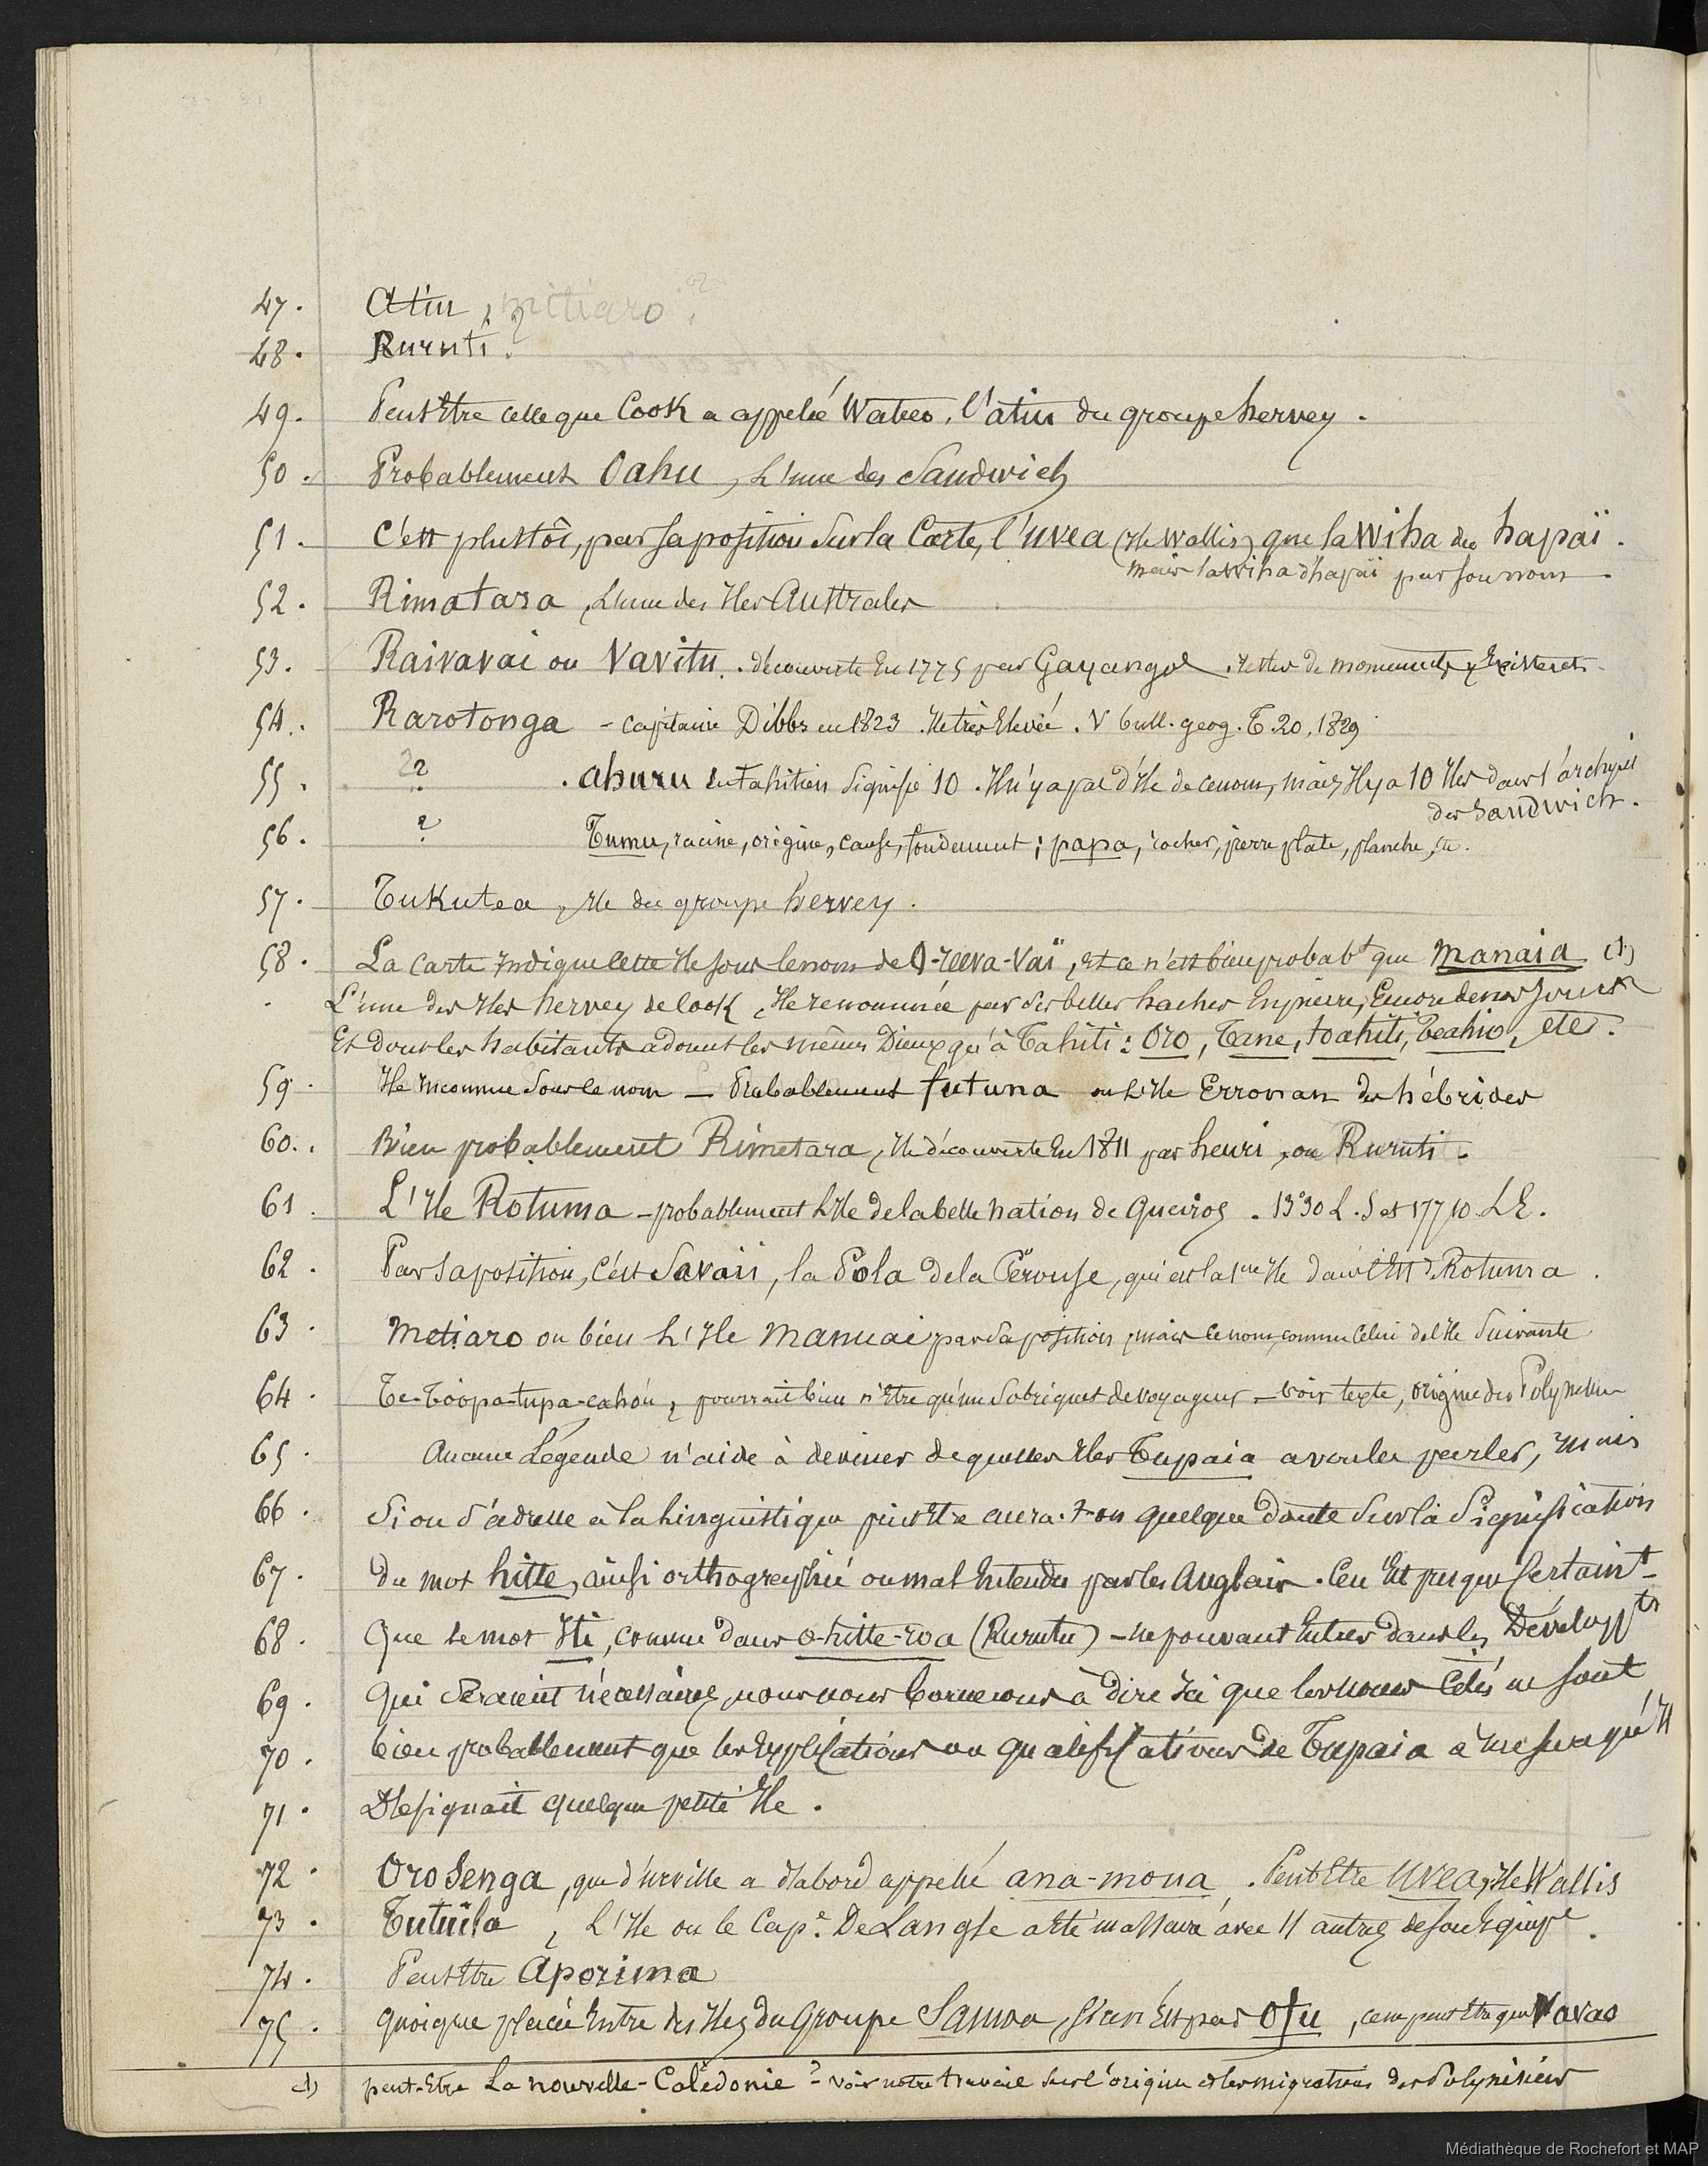 47. Atiu, mitiaro ?
48. Ruruti ?
49. Peut Etre celle que Cook a appelée Wateo, l'atiu du groupe hervey.
50. Probablement Oahu, L'une des Sandwich
51. C'est plustôt, par sa position sur la Carte, l'uvea (Ile Wallis) que la Wiha du hapaï.
mais la wiha d'hapaï par son nom
52. Rimatara, L'une des Iles Australes
53. Raivavai ou Vavitu. découverte En 1775 par Gayangos. restes de monuments y Existent.
54. Rarotonga - capitaine Dibbs en 1823. Ile très Elevée. V bull. geog. T. 20, 1829
55. ? . ahuru en tahitien Signifie 10. Il n'y a pas d'Ile de ce nom, mais Il y a 10 Iles dans l'archipel
des Sandwich.
56. ? Tumu, racine, origine, cause, fondement ; papa, rocher, pierre plate, planche,
57. Tukutea, Ile du groupe hervey.
58. La Carte Indique cette Ile sous le nom de O-reeva-Vaï, et ce n'est bien probabt que Manaia (1)
L'une des Iles hervey de Cook, Ile renommée par ses belles haches En pierre, Encore de nos jours
Et dont les habitants adorent les mêmes Dieux qu'à Tahiti : Oro, Tane, toahiti, Teahio, etc.
59. Ile Inconnue Sous ce nom - Probablement futuna ou L'Ile Erronan des hébrides
60. Bien probablement Rimetara, Ile découverte En 1811 par henri, ou Ruruti.
61. L'Ile Rotuma - probablement L'Ile de la belle nation de Queiros. 13°30 L. S et 177 10. L E.
62. Par sa position, c'est Savaii, la Pola de la Pérouse, qui est la 1ere Ile dans l'Est de Rotuma.
63. Metiaro ou bien L'Ile Manuai par sa position, mais ce nom, comme celui de l'Ile Suivante
64. Te-Toopa-tupa-eahou, pourrait bien n'Etre qu'un Sobriquet de voyageur - voir texte, origine des Polynésiens
65. Aucune Légende n'aide à deviner de quelles Iles Tupaia a voulu parler, mais
66. Si on s'adresse à la Linguistique peut Etre aura-t-on quelque doute Sur la Signification
67. du mot hitte, ainsi orthographié ou mal Entendu par les Anglais. Ce n'Est presque Certaint
68. Que le mot Iti, comme dans o-hitte-roa (Rurutu) - ne pouvant Entrer dans les Développts
69. Qui Seraient nécessaires, nous nous bornerons à dire Ici que les noms Cités ne sont
70. bien probablement que les Explications ou qualifications de Tupaia à mesure qu'Il
71. Désignait quelque petite Ile.
72. Orosenga, que d'urville a d'abord appelé ana-moua. Peut Etre Uvea, Ile Wallis
73. Tutuila, L'Ile ou le Cape. De Langle a été massacré avec 11 autres de son Equipe.
74. Peut Etre Aporima
75. Quoique placée Entre des Iles du Groupe Samoa, Si ce n'Est pas Ofu, ce ne peut Etre que Vavao
(1) peut-Etre La nouvelle-Calédonie ? - voir notre travail sur l'origine et les migrations des Polynésiens
Médiathèque de Rochefort et MAP